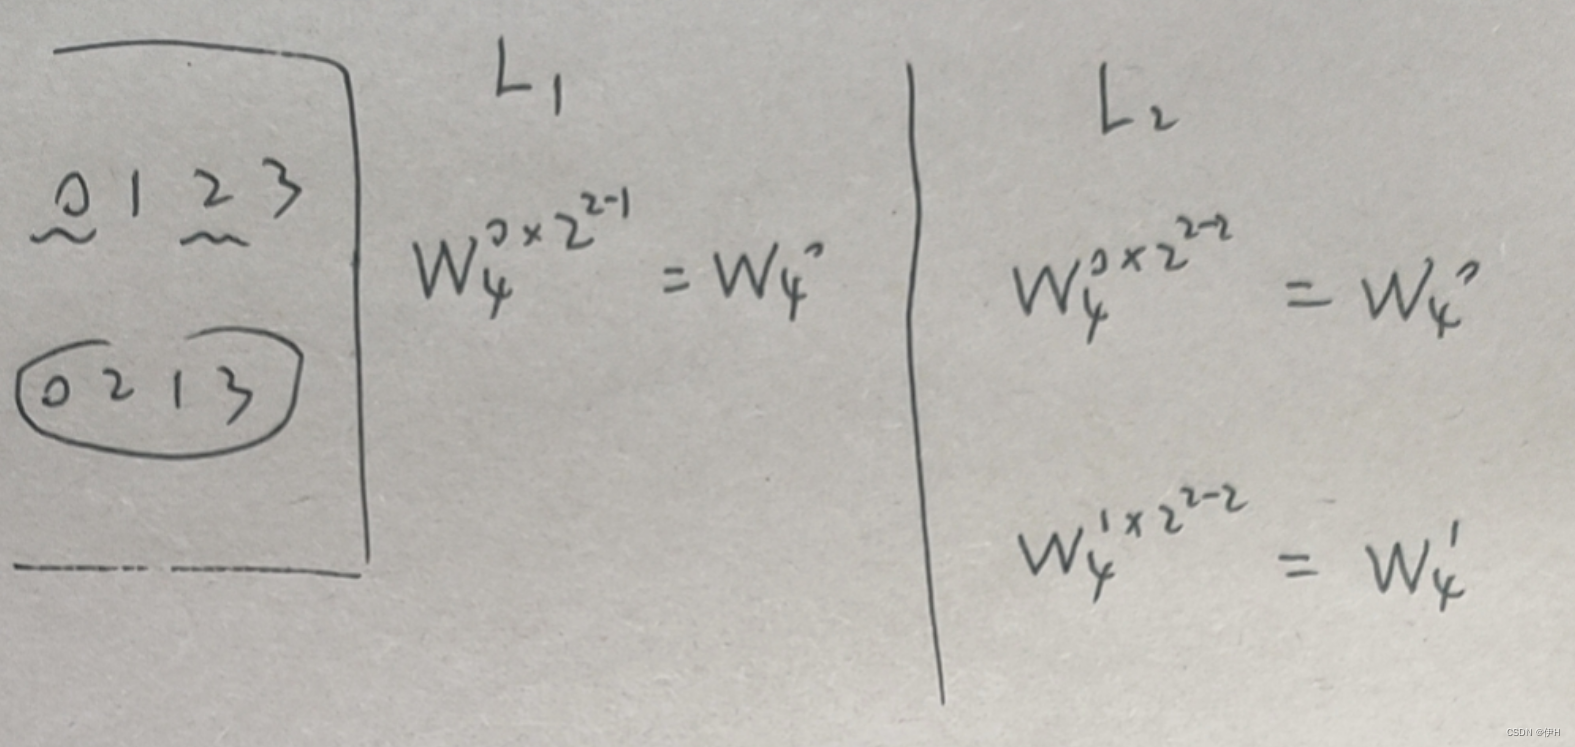 0 1 2 3
0 2 1 3
L₁
W₄^{0×2^{2-1}} = W₄⁰
L₂
W₄^{0×2^{2-2}} = W₄⁰
W₄^{1×2^{2-2}} = W₄¹
CSDN @伊H